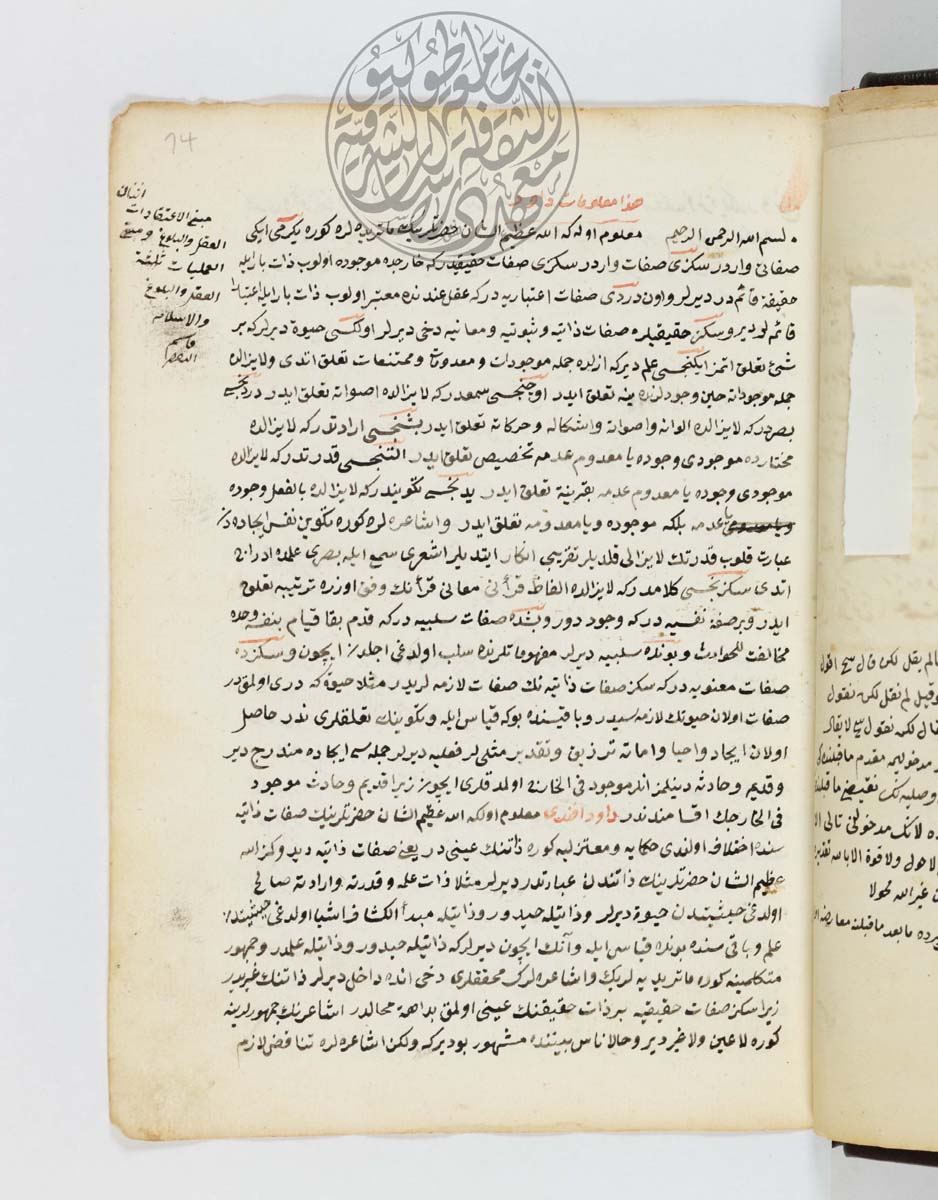 74
هذا معلومات داود
بسم الله الرحمن الرحيم معلوم اوله كه الله عظيم الشان حضرتلرينك ماتريديه لره كوره يكرمى ايكى
صفاتى واردر سكزى صفات واردر سكزى صفات حقيقيه در كه خارجده موجوده اولوب ذات باريله
حقيقة قائم در ديرلر واون دردى صفات اعتباريه در كه عقل عندنده معتبر اولوب ذات باريله اعتبارا
قائم لردير وسكز حقيقيلره صفات ذاتيه و ثبوتيه و معانيه دخى ديرلر اولكيسى حيوة ديرلر كه بر
شئ تعلق اتمز ايكنجسى علم ديركه ازلده جمله موجودات و معدومات و ممتنعات تعلق اتدى ولايزالده
جمله موجوداته حين وجودلرنده ينه تعلق ايدر اوچنجسى سمعدر كه لايزالده اصواته تعلق ايدر دردنجسى
بصردر كه لايزالده الوانه واصواته واشكاله وحركاته تعلق ايدر بشنجسى ارادتدر كه لايزالده
مختارده موجودى وجوده يا معدوم عدمه تخصيص تعلق ايدر التنجسى قدرتدر كه لايزالده
موجودى وجوده يا معدوم عدمه بقرينة تعلق ايدر يدنجسى تكويندر كه لايزالده بالفعل وجوده
يا عدمه بلكه موجوده ويا معدومه تعلق ايدر واشاعره لره كوره تكوين نفس ايجاده دن
عبارت قلوب قدرتك لايزالى قلديلر تغريبى انكار ايتديلر اشعرى سمع ايله بصرى علمده ادراج
اتدى سكزنجسى كلامدر كه لايزالده الفاظ قرآنى معانى قرآنك وفق اوزره ترتيبه تعلق
ايدر وبر صفة نفسيه در كه وجود دور وبشده صفات سلبيه در كه قدم بقا قيام بنفسه وحده
مخالفت للحوادث و بونلره سلبيه ديرلر مفهوماتلرنده سلب اولدغى اجلدن ايچون وسكزده
صفات معنويه در كه سكز صفات ذاتيه نك صفات لازمه لريدر مثلا حيوة كه درى اولمق در
صفات اولان حيوتك لازمه سيدر وباقيسنده بوكه قياس ايله وتكوينك تعلقلرى ندر حاصل
اولان ايجاد واحيا واماته ترزيق وتقدير مثلى لر فعليه ديرلر جمله سى ايجاده مندرج دير
وقديم وحادثه دينلمز انلر موجود فى الخارج اولدقلرى ايچون زيرا قديم وحادث موجود
فى الخارجك اقسامندندر داود افندى معلوم اولكه الله عظيم الشان حضرتلرينك صفات ذاتيه
سنده اختلاف اولندى حكمايه ومعتزليه كوره ذاتنك عينى در يعنى صفات ذاتيه ديدوكز الله
عظيم الشان حضرتلرينك ذاتندن عبارتدر ديرلر مثلا ذات علمه وقدرته وارادته صالح
اولدغى حيثيتدن حيوة ديرلر وذاتيله حيدور وذاتيله مبدأ انكشاف اشيا اولدغى حيثيتدن
علم وباقى سنده بونلره قياس ايله وآنك ايچون ديرلر كه ذاتيله حيدور وذاتيله علمدر وجمهور
متكلمينه كوره ماتريديه لرينك واشاعره لرك محققلرى دخى انده داخل ديرلر ذاتنك غيريدر
زيرا سكز صفات حقيقيه بر ذات حقيقتنك عينى اولمق بداهة محالدر اشاعرنك جمهورلرينه
كوره لا عين ولا غير دير وحالا ناس بيننده مشهور بودير كه ولكن اشاعره لره تناقض لازم
اثنان
مبنى الاعتقادات
العقل والبلوغ ومبنى
العمليات ثلثة
العقل والبلوغ
والاسلام
قاسم
عالم يقل لكن قال سيح اقول
وقيل لم نقل لكن نقول
يقال لكن نقول سى لا يقال
مدخوليمه مقدم ما قبلنده كى
وصليه نك نقيضى ما قبلنده
ده لانك مدخولى تالى الا
لا حول ولا قوة الا بالله تقديره
ن غير الله محولا
يرده ما بعد ما قبلنه معارضه
معهد الثقافة والدراسات الشرقية